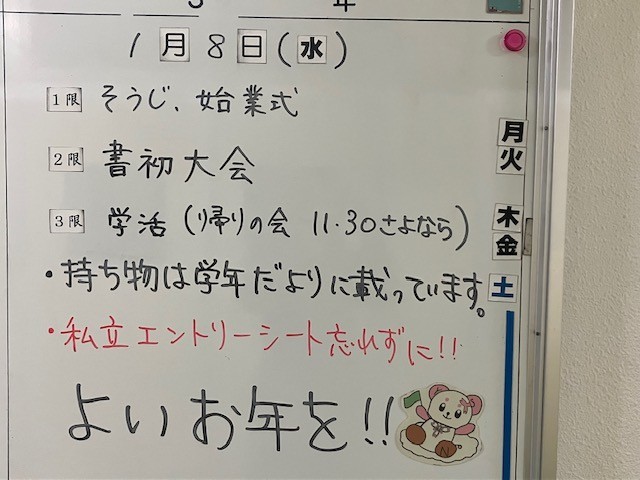 3 年
1月8日(水)
1限 そうじ、始業式
2限 書初大会
3限 学活(帰りの会 11.30さよなら)
・持ち物は学年だよりに載っています。
・私立エントリーシート忘れずに!!
よいお年を!!
N
月
火
木
金
土